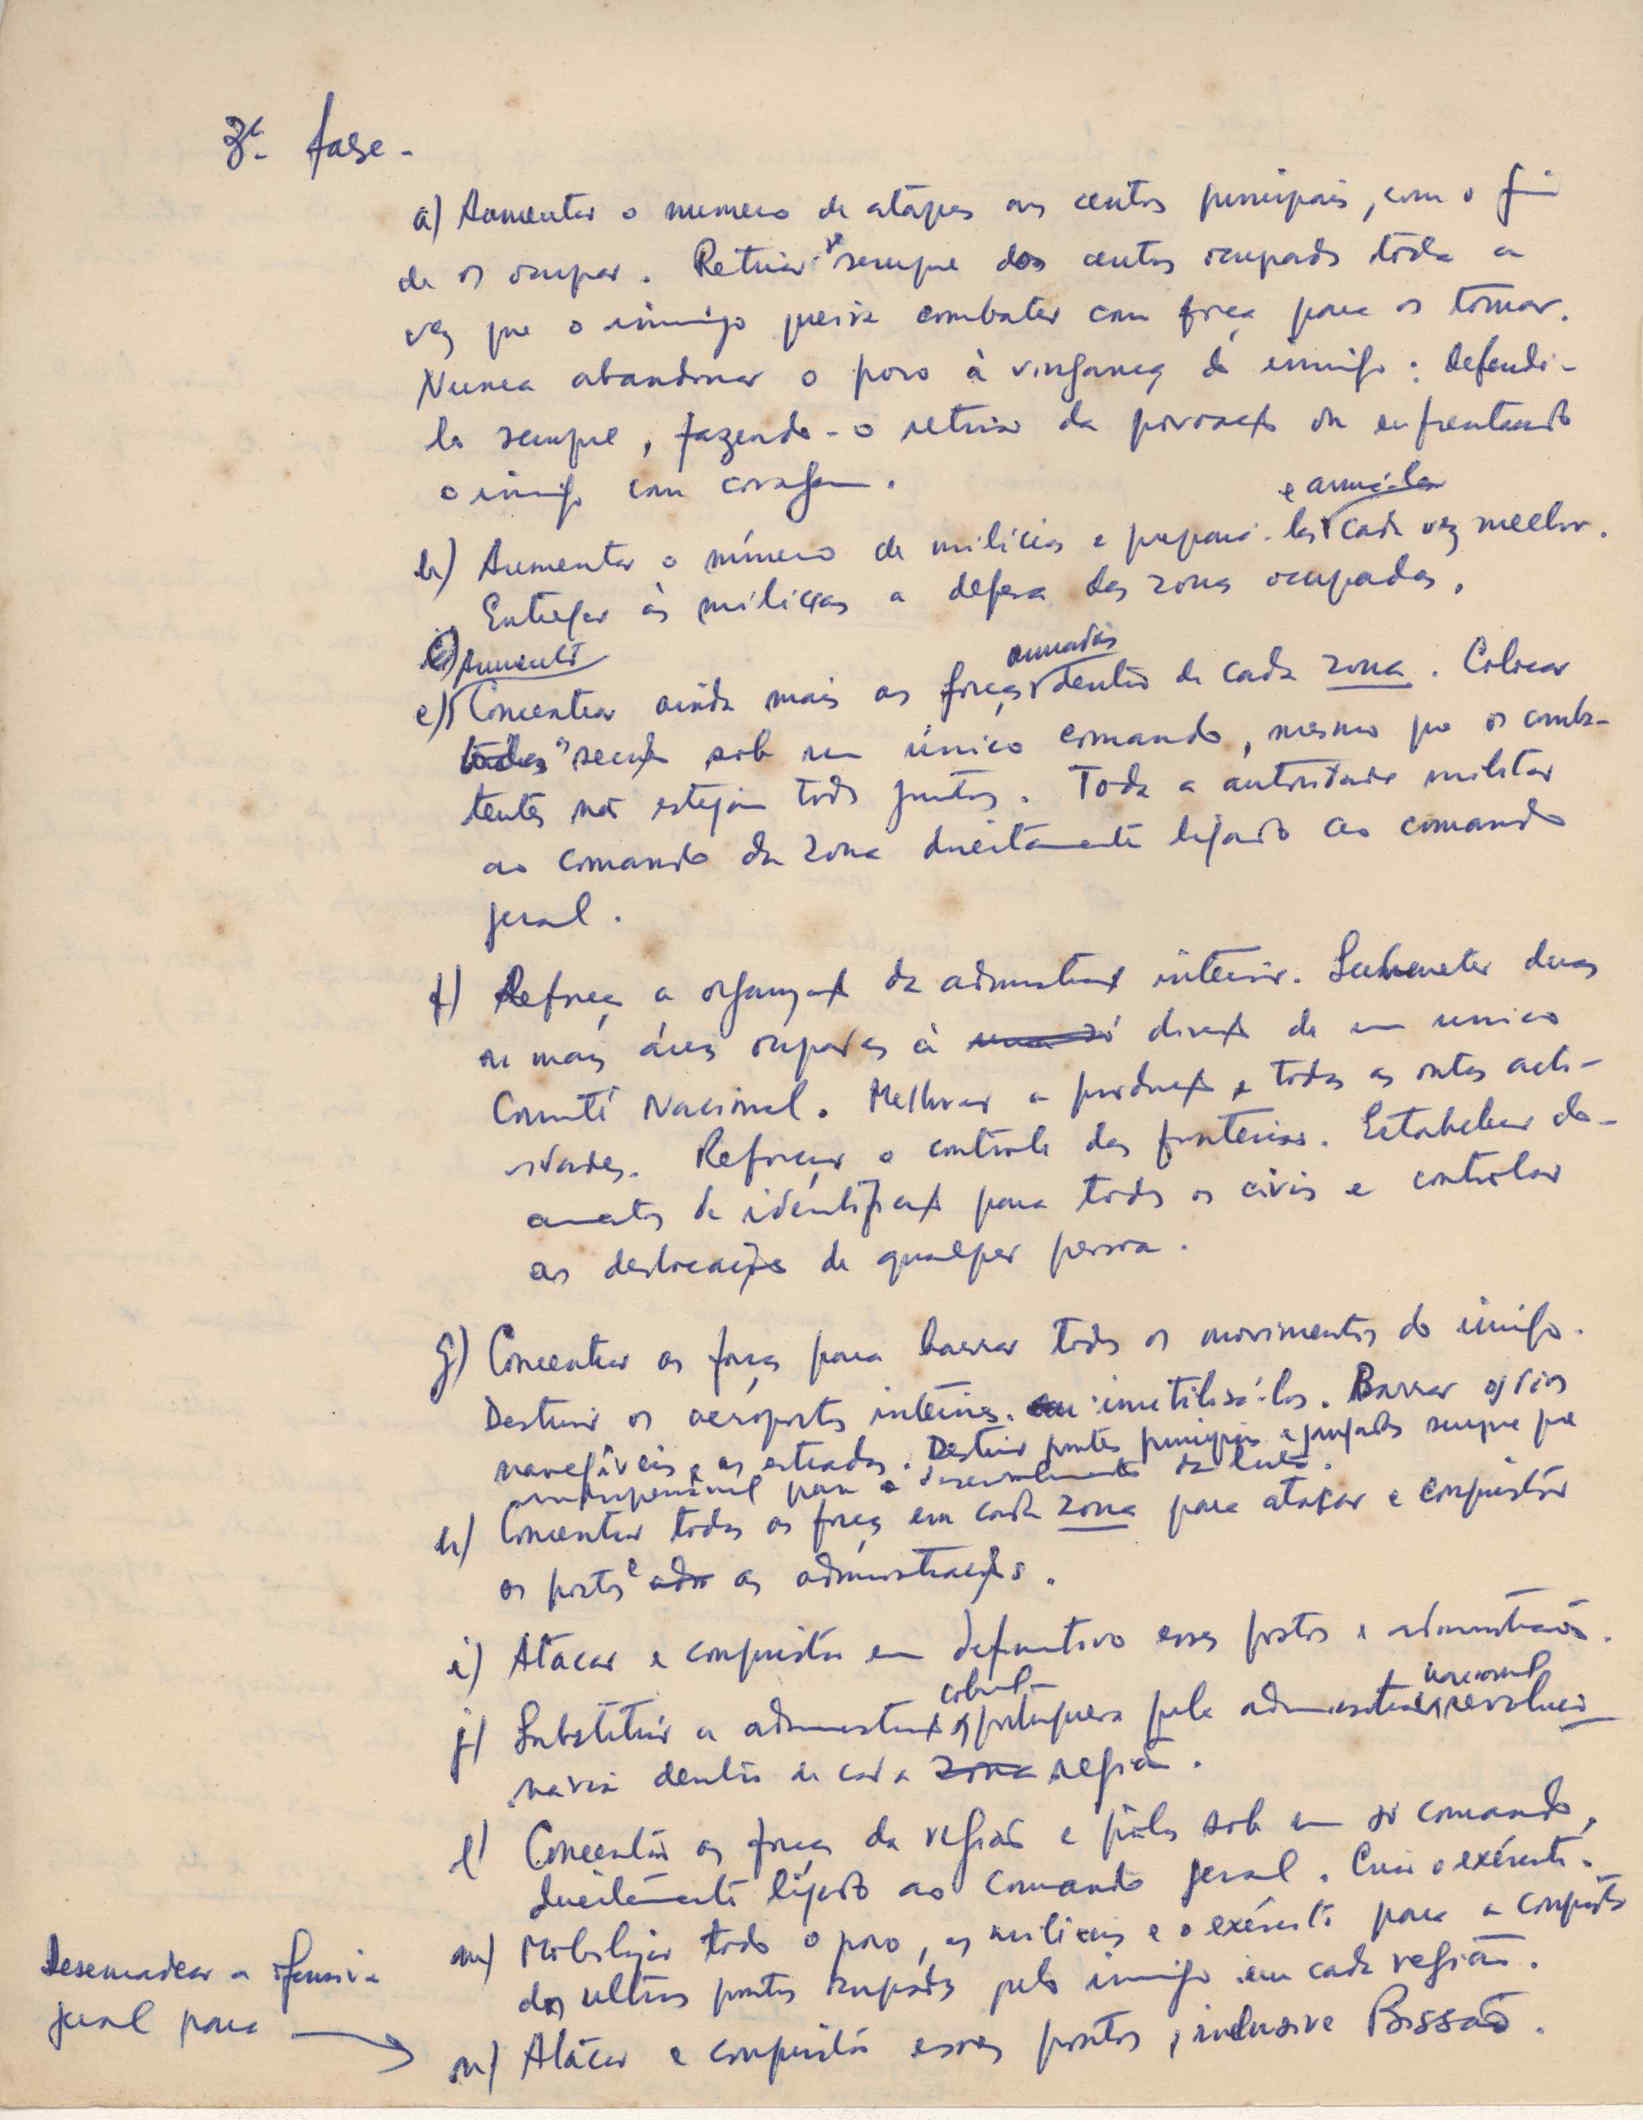 3ª fase -
a) Aumentar o numero de ataques aos centros principais, com o fim
de os ocupar. Retirar-se sempre dos centros ocupados toda a
vez que o inimigo queira combater com força para os tomar.
Nunca abandonar o povo à vingança do inimigo: defendê-
lo sempre, fazendo-o retirar da povoação ou enfrentando
o inimigo com coragem.
b) Aumentar o número de milicias e prepará-las e armá-las cada vez melhor.
Entregar às milicias a defesa das zonas ocupadas.
c) Aumentar
e) Concentrar ainda mais as forças armadas dentro de cada zona. Colocar
todas sob um único comando, mesmo que os comba-
tentes não estejam todos juntos. Toda a autoridade militar
ao comando da zona directamente ligado ao comando
geral.
f) Reforçar a organização da administração interior. Submeter duas
ou mais áreas ocupadas à uma só direcção de um unico
Comité Nacional. Melhorar a produção e todas as outras acti-
vidades. Reforçar o controle das fronteiras. Estabelecer do-
cumentos de identificação para todos os civis e controlar
as deslocações de qualquer pessoa.
g) Concentrar as forças para barrar todos os movimentos do inimigo.
Destruir os aeroportos interiores. ou inutilizá-los. Barrar os rios
navegáveis e as estradas. Destruir pontes principais e jangadas sempre que
indispensável para o desenvolvimento da luta.
h) Concentrar todas as forças em cada zona para atacar e conquistar
os postos e adm as administrações.
i) Atacar e conquistar em definitivo esses postos e administrações.
j) Substituir a administração colonial portuguesa pela administração nacional revolucio
nária dentro de cada zona região.
l) Concentrar as forças da região e pô-las sob um só comando,
directamente ligado ao Comando geral. Criar o exército.
m) Mobilizar todo o povo, as milicias e o exército para a conquista
dos ultimos pontos ocupados pelo inimigo em cada região.
Desencadear a ofensiva
geral para
n) Atacar e conquistar esses pontos, inclusive Bissao.